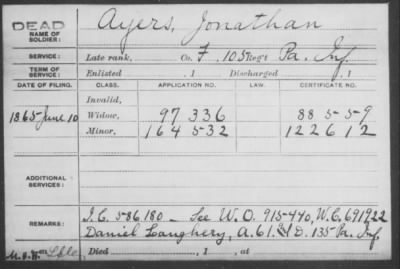 DEAD Ayers, Jonathan
NAME OF SOLDIER:
SERVICE: Late rank, Co. F, 105 Reg't Pa. Inf.
TERM OF SERVICE: Enlisted , 1 Discharged , 1
DATE OF FILING. CLASS. APPLICATION NO. LAW. CERTIFICATE NO.
Invalid,
1865 June 10 Widow, 97 336 88 559
Minor, 164 532 122612
ADDITIONAL SERVICES:
REMARKS: I.C. 586180 – See W.O. 915440, W.C. 691922
Daniel Laughery, A. 61. & D. 135 Pa. Inf.
Died , 1 , at